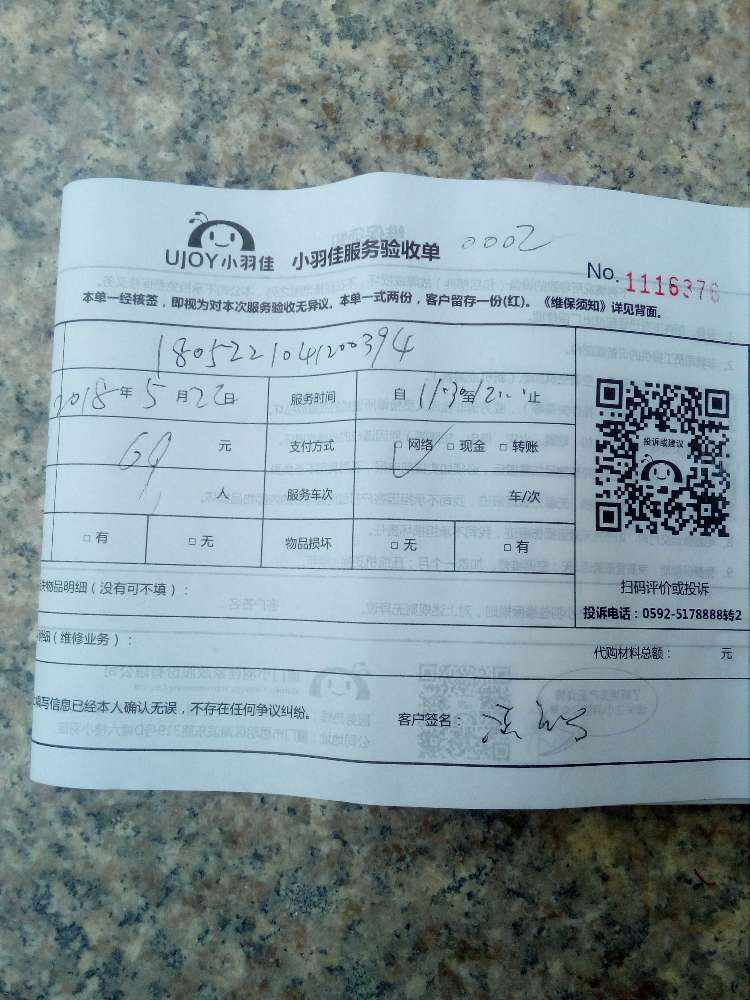 UJOY小羽佳 小羽佳服务验收单 0002
No. 1116376
本单一经核签，即视为对本次服务验收无异议。本单一式两份，客户留存一份(红)。《维保须知》详见背面。
180522104200394
2018年5月22日 服务时间 自11:30至12:00止
69元 支付方式 □网络 □现金 □转账
1人 服务车次 车/次
□有 □无 物品损坏 □无 □有
投诉或建议
扫码评价或投诉
投诉电话：0592-5178888转2
物品明细（没有可不填）：
（维修业务）：
代购材料总额： 元
填写信息已经本人确认无误，不存在任何争议纠纷。
客户签名：